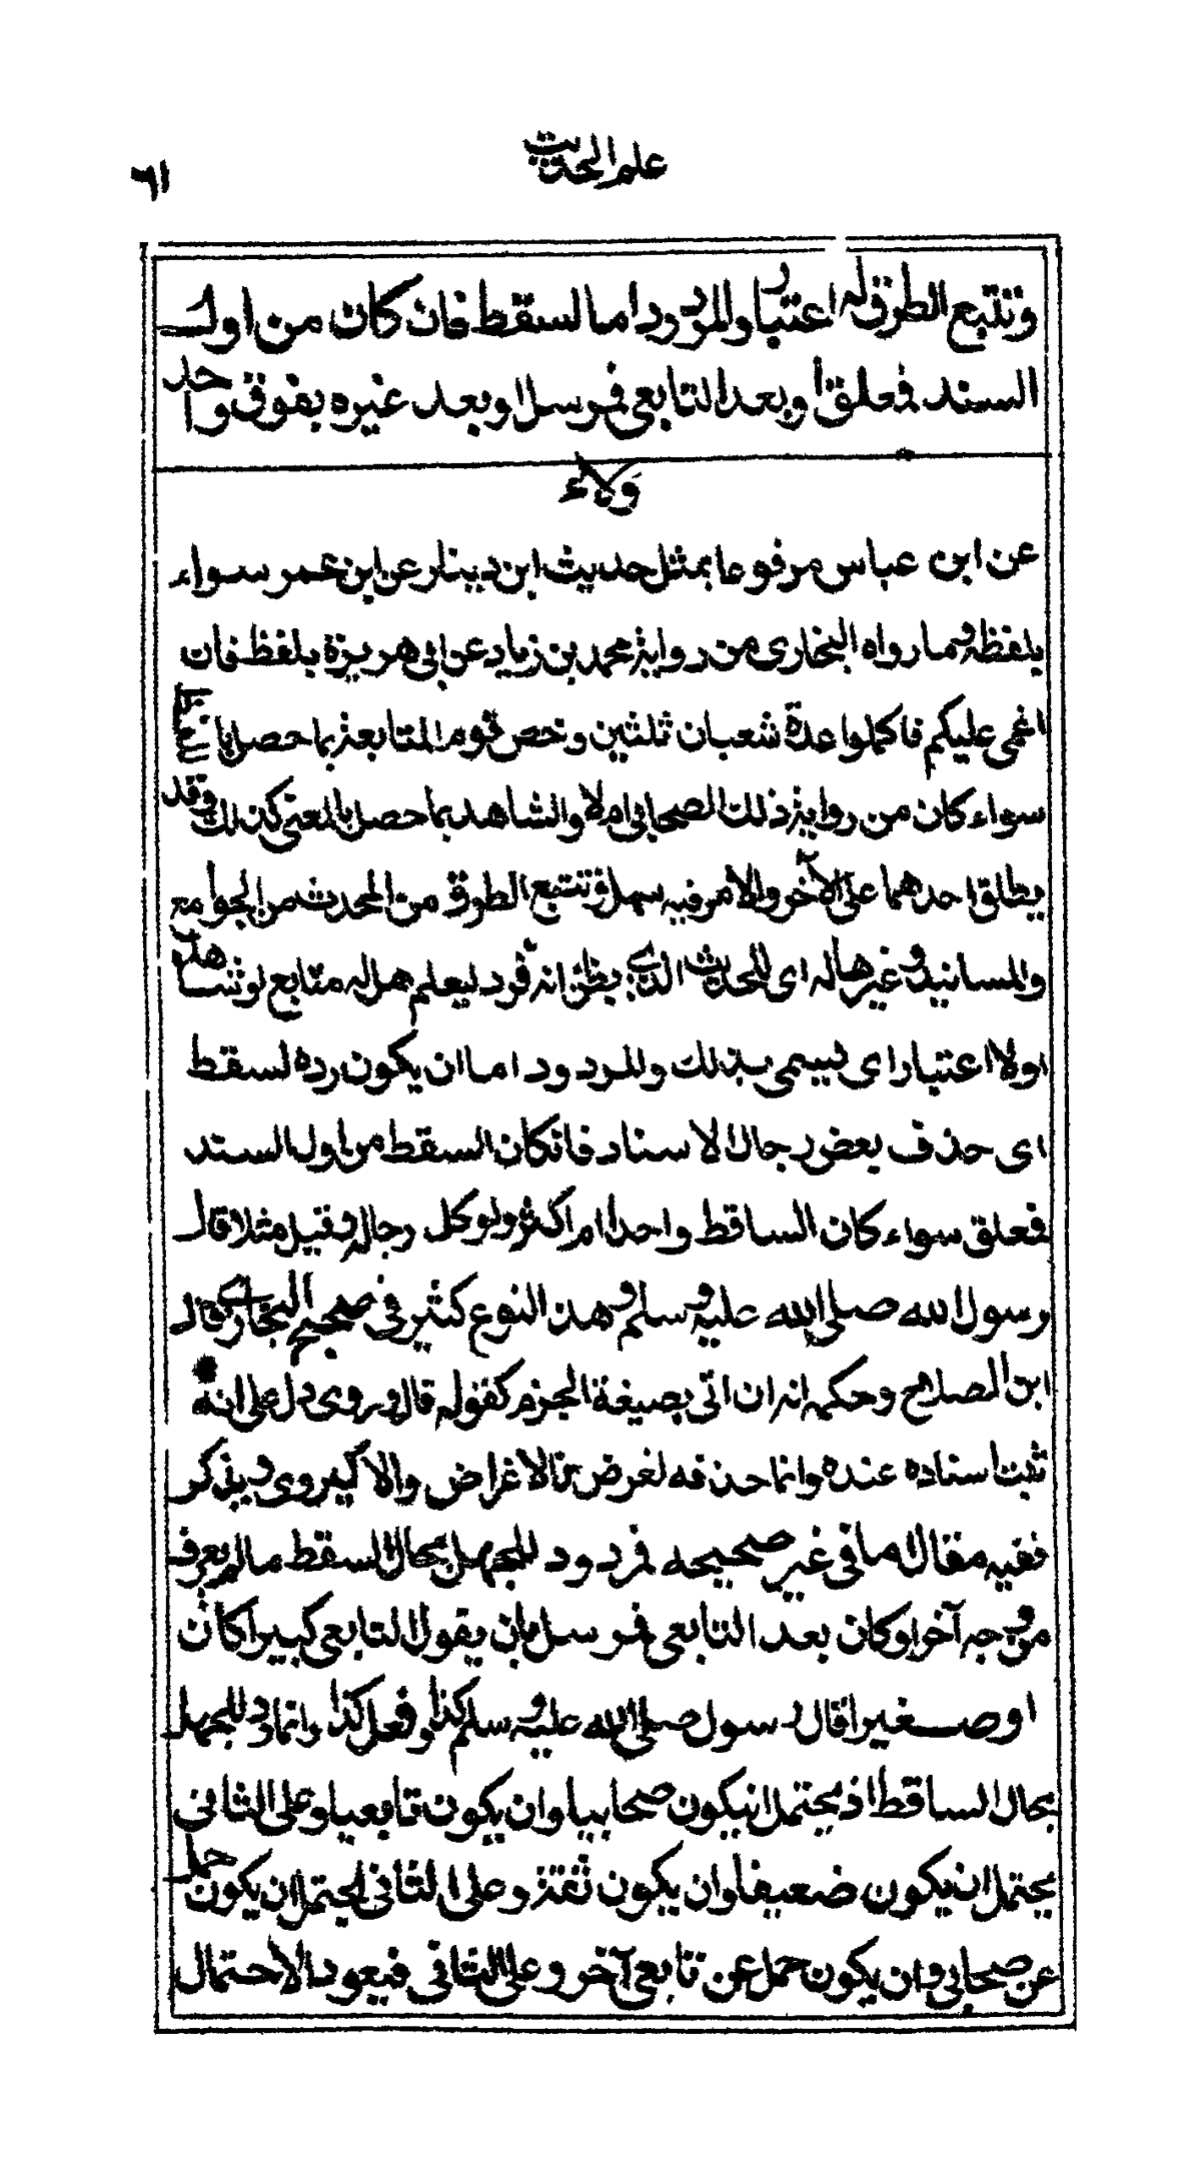 علم الحديث
٦١
وتتبع الطرق له اعتبار والمردود اما لسقط فان كان من اول
السند فمعلق أو بعد التابعي فمرسل او بعد غيره بفوق واحد
ولاء
عن ابن عباس مرفوعا بمثل حديث ابن دينار عن ابن عمر سواء
بلفظه وبما رواه البخاري من رواية محمد بن زياد عن ابي هريرة بلفظ فان
اغمي عليكم فاكملوا عدة شعبان ثلثين وخص قوم المتابعة بما حصل
سواء كان من رواية ذلك الصحابي ام لا والشاهد بما حصل بالمعنى كذلك وقد
يطلق احدهما على الآخر والامر فيه سهل وتتبع الطرق من المحدث من الجوامع
والمسانيد وغيرها له اى للحديث الذي يظن انه فرد ليعلم هل له متابع او شاهد
اولا اعتبار اى يسمى بذلك والمردود اما ان يكون رده لسقط
اى حذف بعض رجال الاسناد فانكان السقط من اول السند
فمعلق سواء كان الساقط واحدا ام اكثر ولو كل رجاله وقيل مثلا قال
رسول الله صلى الله عليه وسلم وهذا النوع كثير في صحيح البخاري قال
ابن الصلاح وحكمه انه ان اتى بصيغة الجزم كقوله قال وروى دل على انه
ثبت اسناده عنده وانما حذفه لغرض من الاغراض والا كيروى ويذكر
ففيه مقال اما في غير صحيحه فمردود للجهل بحال السقط ما لم يعرف
من وجه آخر او كان بعد التابعي فمرسل بان يقول التابعي كبيرا كان
او صغيرا قال رسول صلى الله عليه وسلم كذا وفعل كذا وانما رد للجهل
بحال الساقط اذ يحتمل انيكون صحابيا وان يكون تابعيا وعلى الثاني
يحتمل ان يكون ضعيفا وان يكون ثقة وعلى الثاني يحتمل ان يكون حمل
عن صحابي وان يكون حمل عن تابعي آخر وعلى الثاني فيعود الاحتمال